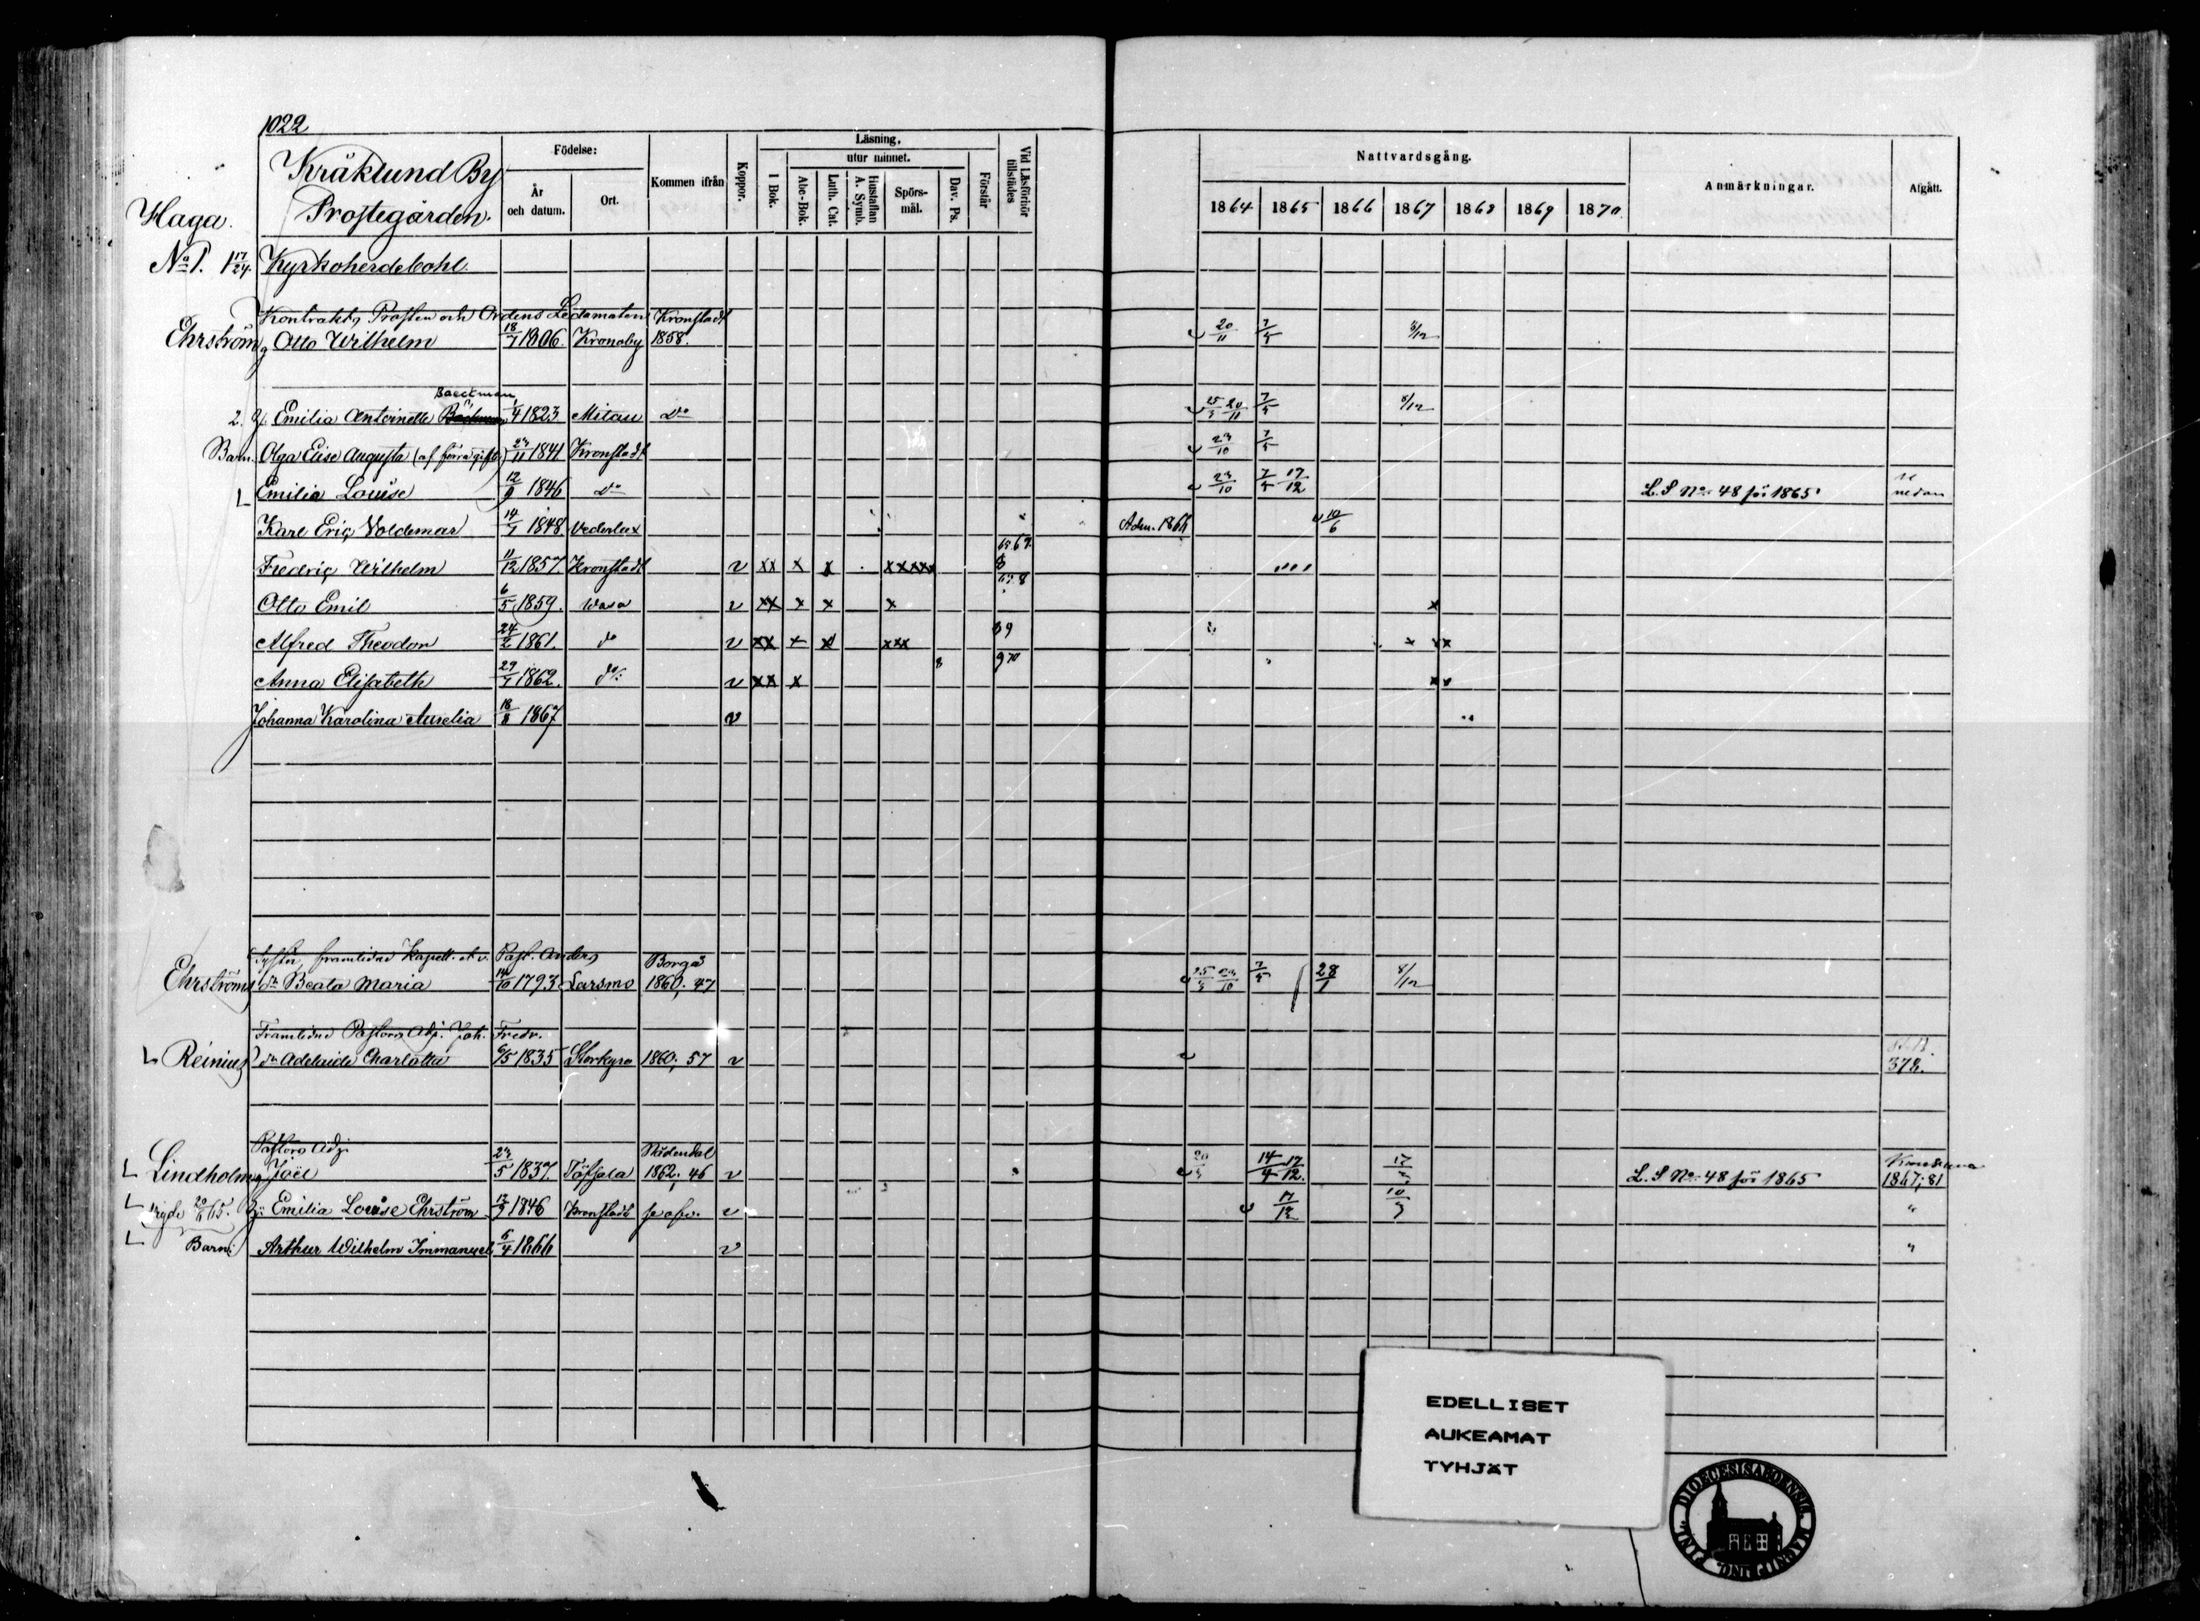 1022
Kråklund By
Prostegården.
Haga.
Födelse:
År och datum.
Ort.
Kommen ifrån
Koppor.
Läsning,
utur minnet.
I Bok.
Abc-Bok.
Luth. Cat.
Hustaflan A. Symb.
Spörsmål.
Dav. Ps.
Förstår
Vid Läsförhör tillstädes
Nattvardsgång.
1864 1865 1866 1867 1868 1869 1870
Anmärkningar.
Afgått.
No 1. 1 17/24. Kyrkoherdebohl.
Kontrakts Prosten och Ordens Ledamoten Kronstadt
Ehrström, Otto Wilhelm 18/7 1806. Kronoby 1858. 20/11 7/5 8/12
Baeckman,
2. H. Emilia Antoinette 1/4 1823 Mitau Do 25/3 20/11 7/5 8/12
Barn. Olga Elise Augusta (af förra gifte) 23/11 1841 Kronstadt 23/10 7/5
Emilia Louise 12/9 1846 do 23/10 7/5 17/12 L. S No 48 för 1865. se nedan
Karl Eric Voldemar 14/7 1848 Vederlax Adm. 1866 10/6
Fredric Wilhelm 11/12 1857. Kronstadt v xx x x xxxxx
Otto Emil 6/5 1859. Wasa v xx x x x x
Alfred Theodor 24/2 1861. do v xx x x xxx 69
Anna Elisabeth 29/7 1862. do: v xx x 9 70
Johanna Karolina Aurelia 18/8 1867 v
Syster, framlidne Kapell. o. v. Past. Anders Borgå
Ehrströms dr Beata Maria 14/10 1793 Larsmo 1860; 47 25/3 23/10 7/5 28/1 8/12
Framlidne Pastors Adj. Joh. Fredr.
Reinius dr Adelaide Charlotta 6/5 1835 Storkyro 1860; 57 v 378.
Pastors Adj.
Lindholm, Joël 23/5 1837. Töfsala Nådendal 1862; 46 v 20/3 14/4 17/12. L. S No 48 för 1865 1867; 81
H: Emilia Louise Ehrström 12/9 1846 Kronstadt se ofv. v 17/12 10/3 "
Barn: Arthur Wilhelm Immanuel 6/4 1866 v "
EDELLISET
AUKEAMAT
TYHJÄT